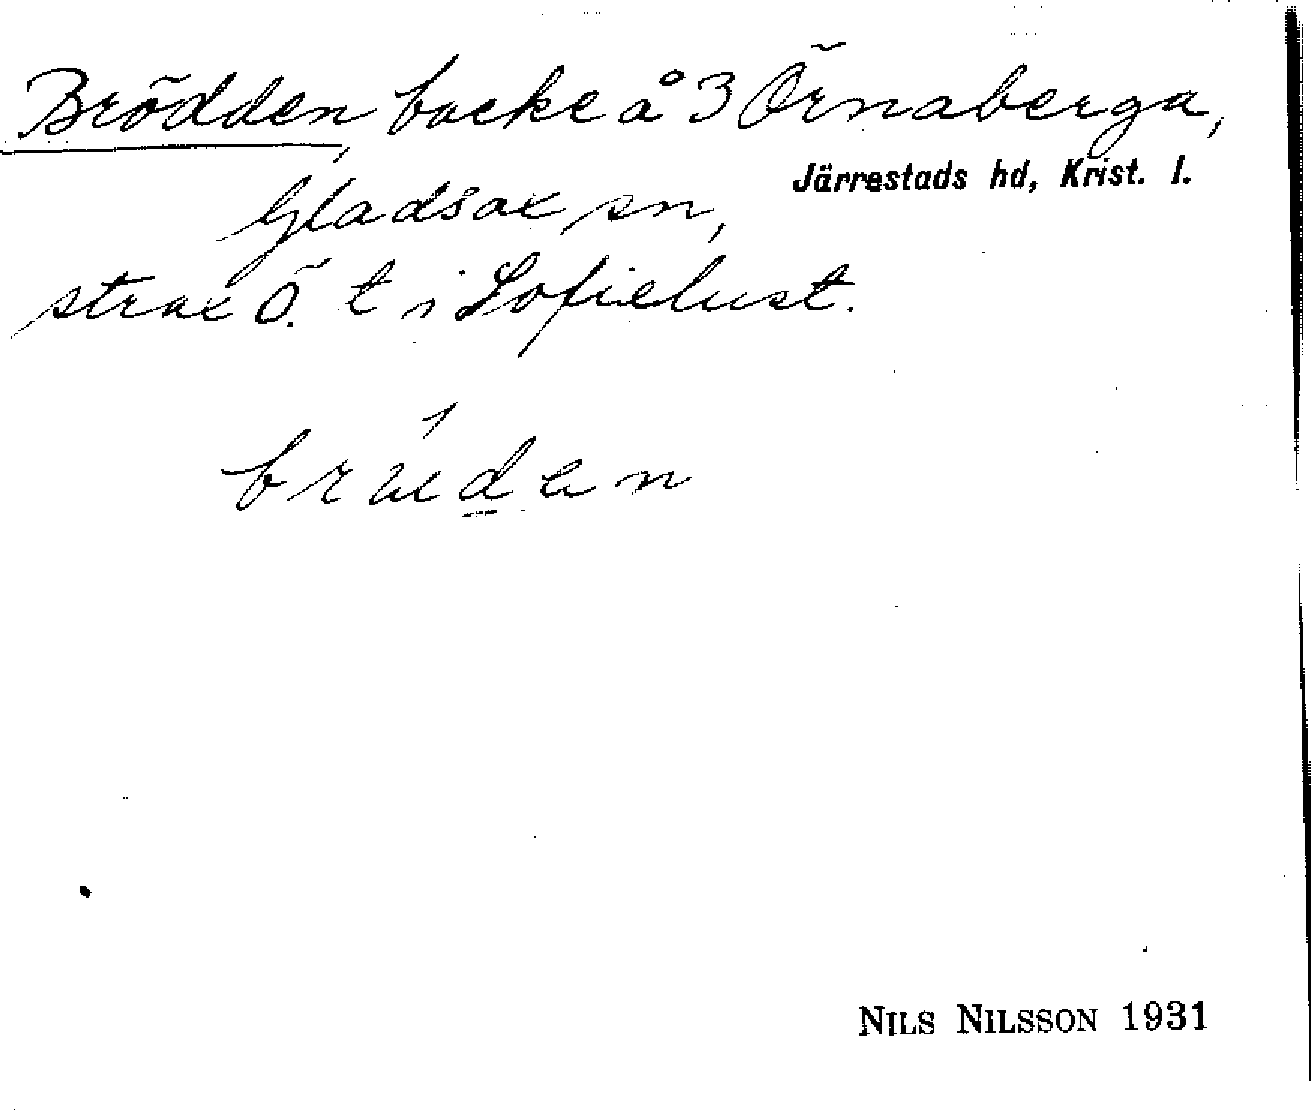 Brödden, backe å 3 Örnaberga,
Järrestads hd, Krist. l.
Gladsax sn,
strax Ö. t. Sofielust.
NILS NILSSON 1931